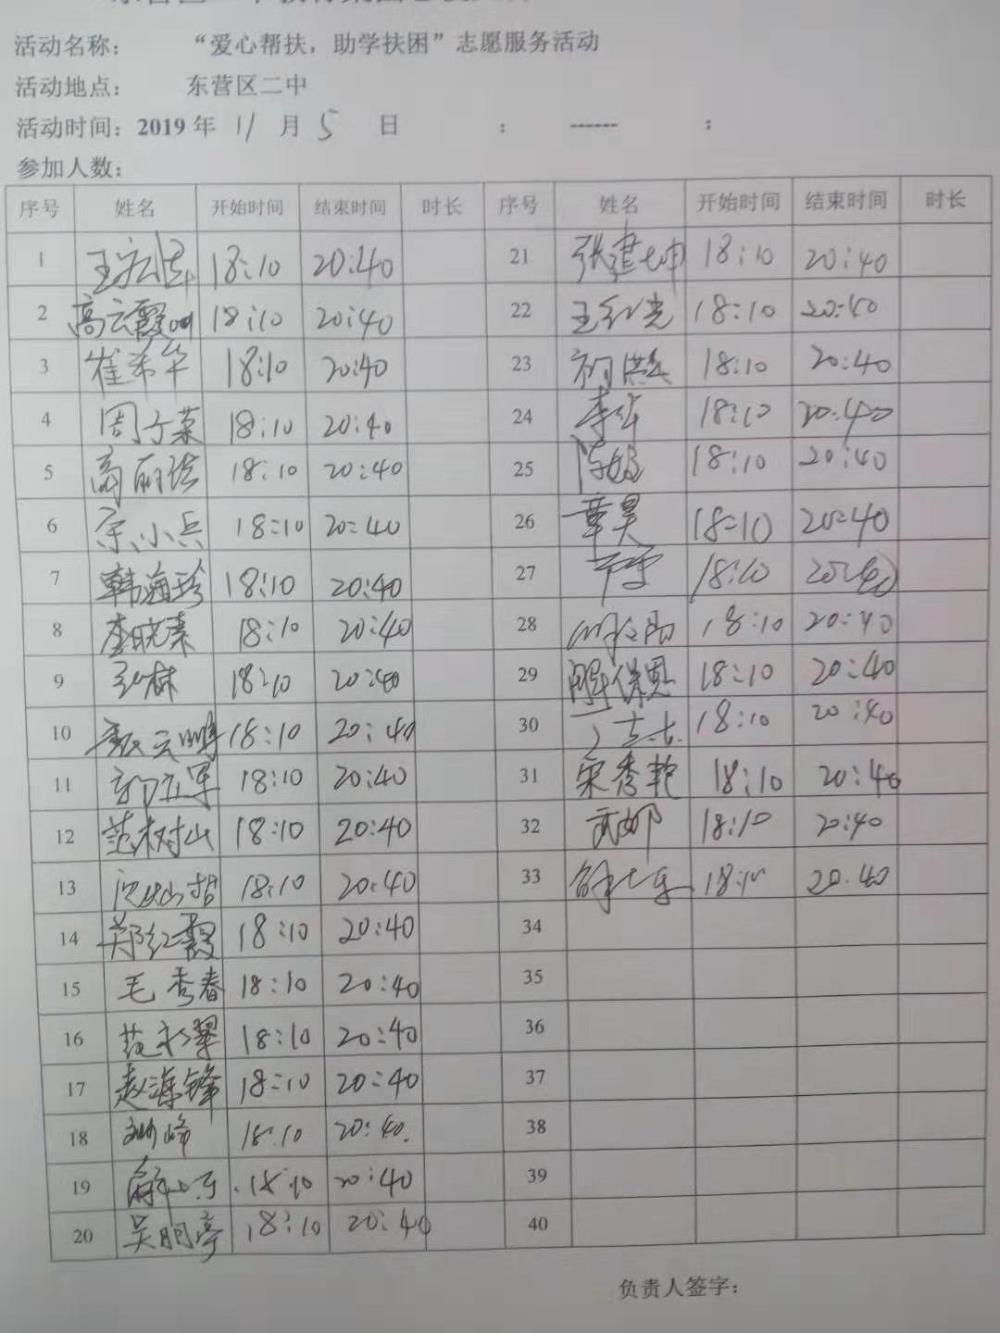 活动名称： “爱心帮扶，助学扶困”志愿服务活动
活动地点： 东营区二中
活动时间：2019年 11 月 5 日 ： ------ ：
参加人数：
序号 姓名 开始时间 结束时间 时长 序号 姓名 开始时间 结束时间 时长
1 18:10 20:40 21 张建坤 18:10 20:40
2 高云霞 18:10 20:40 22 王红光 18:10 20:40
3 崔希华 18:10 20:40 23 18:10 20:40
4 周子荣 18:10 20:40 24 李华 18:10 20:40
5 18:10 20:40 25 18:10 20:40
6 宗小兵 18:10 20:40 26 章昊 18:10 20:40
7 韩海珍 18:10 20:40 27 18:10 20:40
8 李晓春 18:10 20:40 28 18:10 20:40
9 18:10 20:40 29 解保恩 18:10 20:40
10 18:10 20:40 30 18:10 20:40
11 18:10 20:40 31 宋秀艳 18:10 20:40
12 范树山 18:10 20:40 32 武娜 18:10 20:40
13 18:10 20:40 33 18:10 20:40
14 郑红霞 18:10 20:40 34
15 毛秀春 18:10 20:40 35
16 范永翠 18:10 20:40 36
17 赵海锋 18:10 20:40 37
18 18:10 20:40 38
19 18:10 20:40 39
20 吴明亭 18:10 20:40 40
负责人签字：